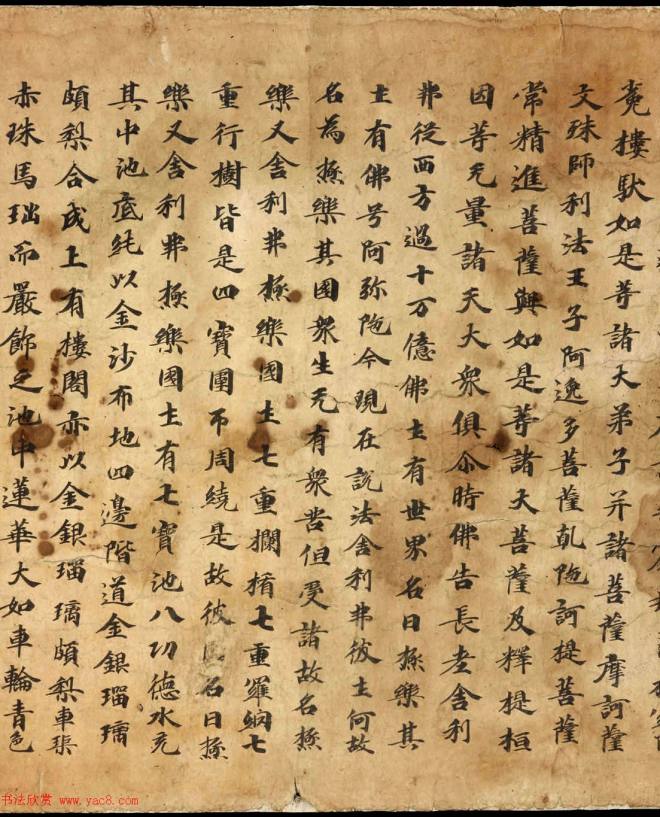 㝹樓馱如是等諸大弟子并諸菩薩摩訶薩
文殊師利法王子阿逸多菩薩乹陁訶提菩薩
常精進菩薩與如是等諸大菩薩及釋提桓
因等无量諸天大衆俱尒時佛告長老舍利
弗從西方過十万億佛土有世界名曰極樂其
土有佛号阿弥陁今現在說法舍利弗彼土何故
名為極樂其國衆生无有衆苦但受諸故名極
樂又舍利弗極樂國土七重欄楯七重羅網七
重行樹皆是四寶圍帀周繞是故彼國名曰極
樂又舍利弗極樂國土有七寶池八功德水充
其中池底純以金沙布地四邊階道金銀瑠璃
頗梨合成上有樓閣亦以金銀瑠璃頗梨車渠
赤珠馬瑙而嚴飾之池中蓮華大如車輪青色
书法欣赏 www.yac8.com